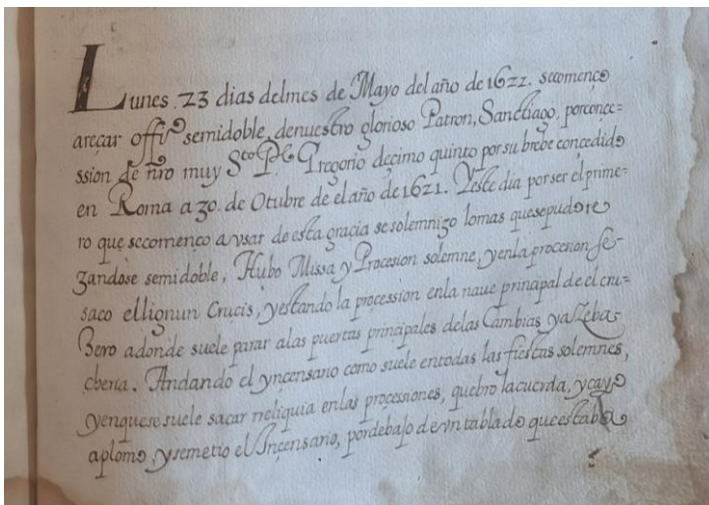 Lunes .23 dias delmes de Mayo del año de 1622. secomenço
areçar offiº semidoble, denuestro glorioso Patron, Sanctiago, porconce=
ssion de nro muy Sto Pe Gregorio decimo quinto por su brebe concedido
en Roma a 30. de Otubre de el año de 1621. Yeste dia por ser el prime=
ro que secomenço a vsar de esta gracia se solemnizo lo mas quesepudo re
zandose semidoble, Hubo Missa y Procesion solemne, yenla procesion se-
saco ellignun Crucis, yestando la procession enla naue principal de el cru=
Zero adonde suele parar alas puertas principales delas Cambias yallebas
cheria. Andando el yncensario como suele entodas las fiestas solemnes,
yenquese suele sacar rreliquia enlas processiones, quebro lacuerda, ycayo
aplomo ysemetio el Incensario, pordebajo devn tablado queestaba